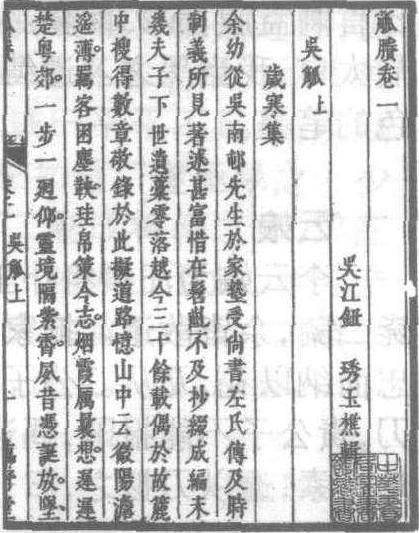 觚賸卷一
吳江鈕 琇玉樵輯
吳觚上
歲寒集
余幼從吳南邨先生於家塾受尚書左氏傳及時
制義所見著述甚富惜在髫齓不及抄綴成編未
幾夫子下世遺藁零落越今三十餘載偶於故簏
中搜得數章敬錄於此擬道路憶山中云微陽澹
遥薄羈客困塵鞅珪帛策今志烟霞屬曩想遲遲
楚粤郊一步一廻仰靈境隔紫霄夙昔憑誕放墜
吳觚上